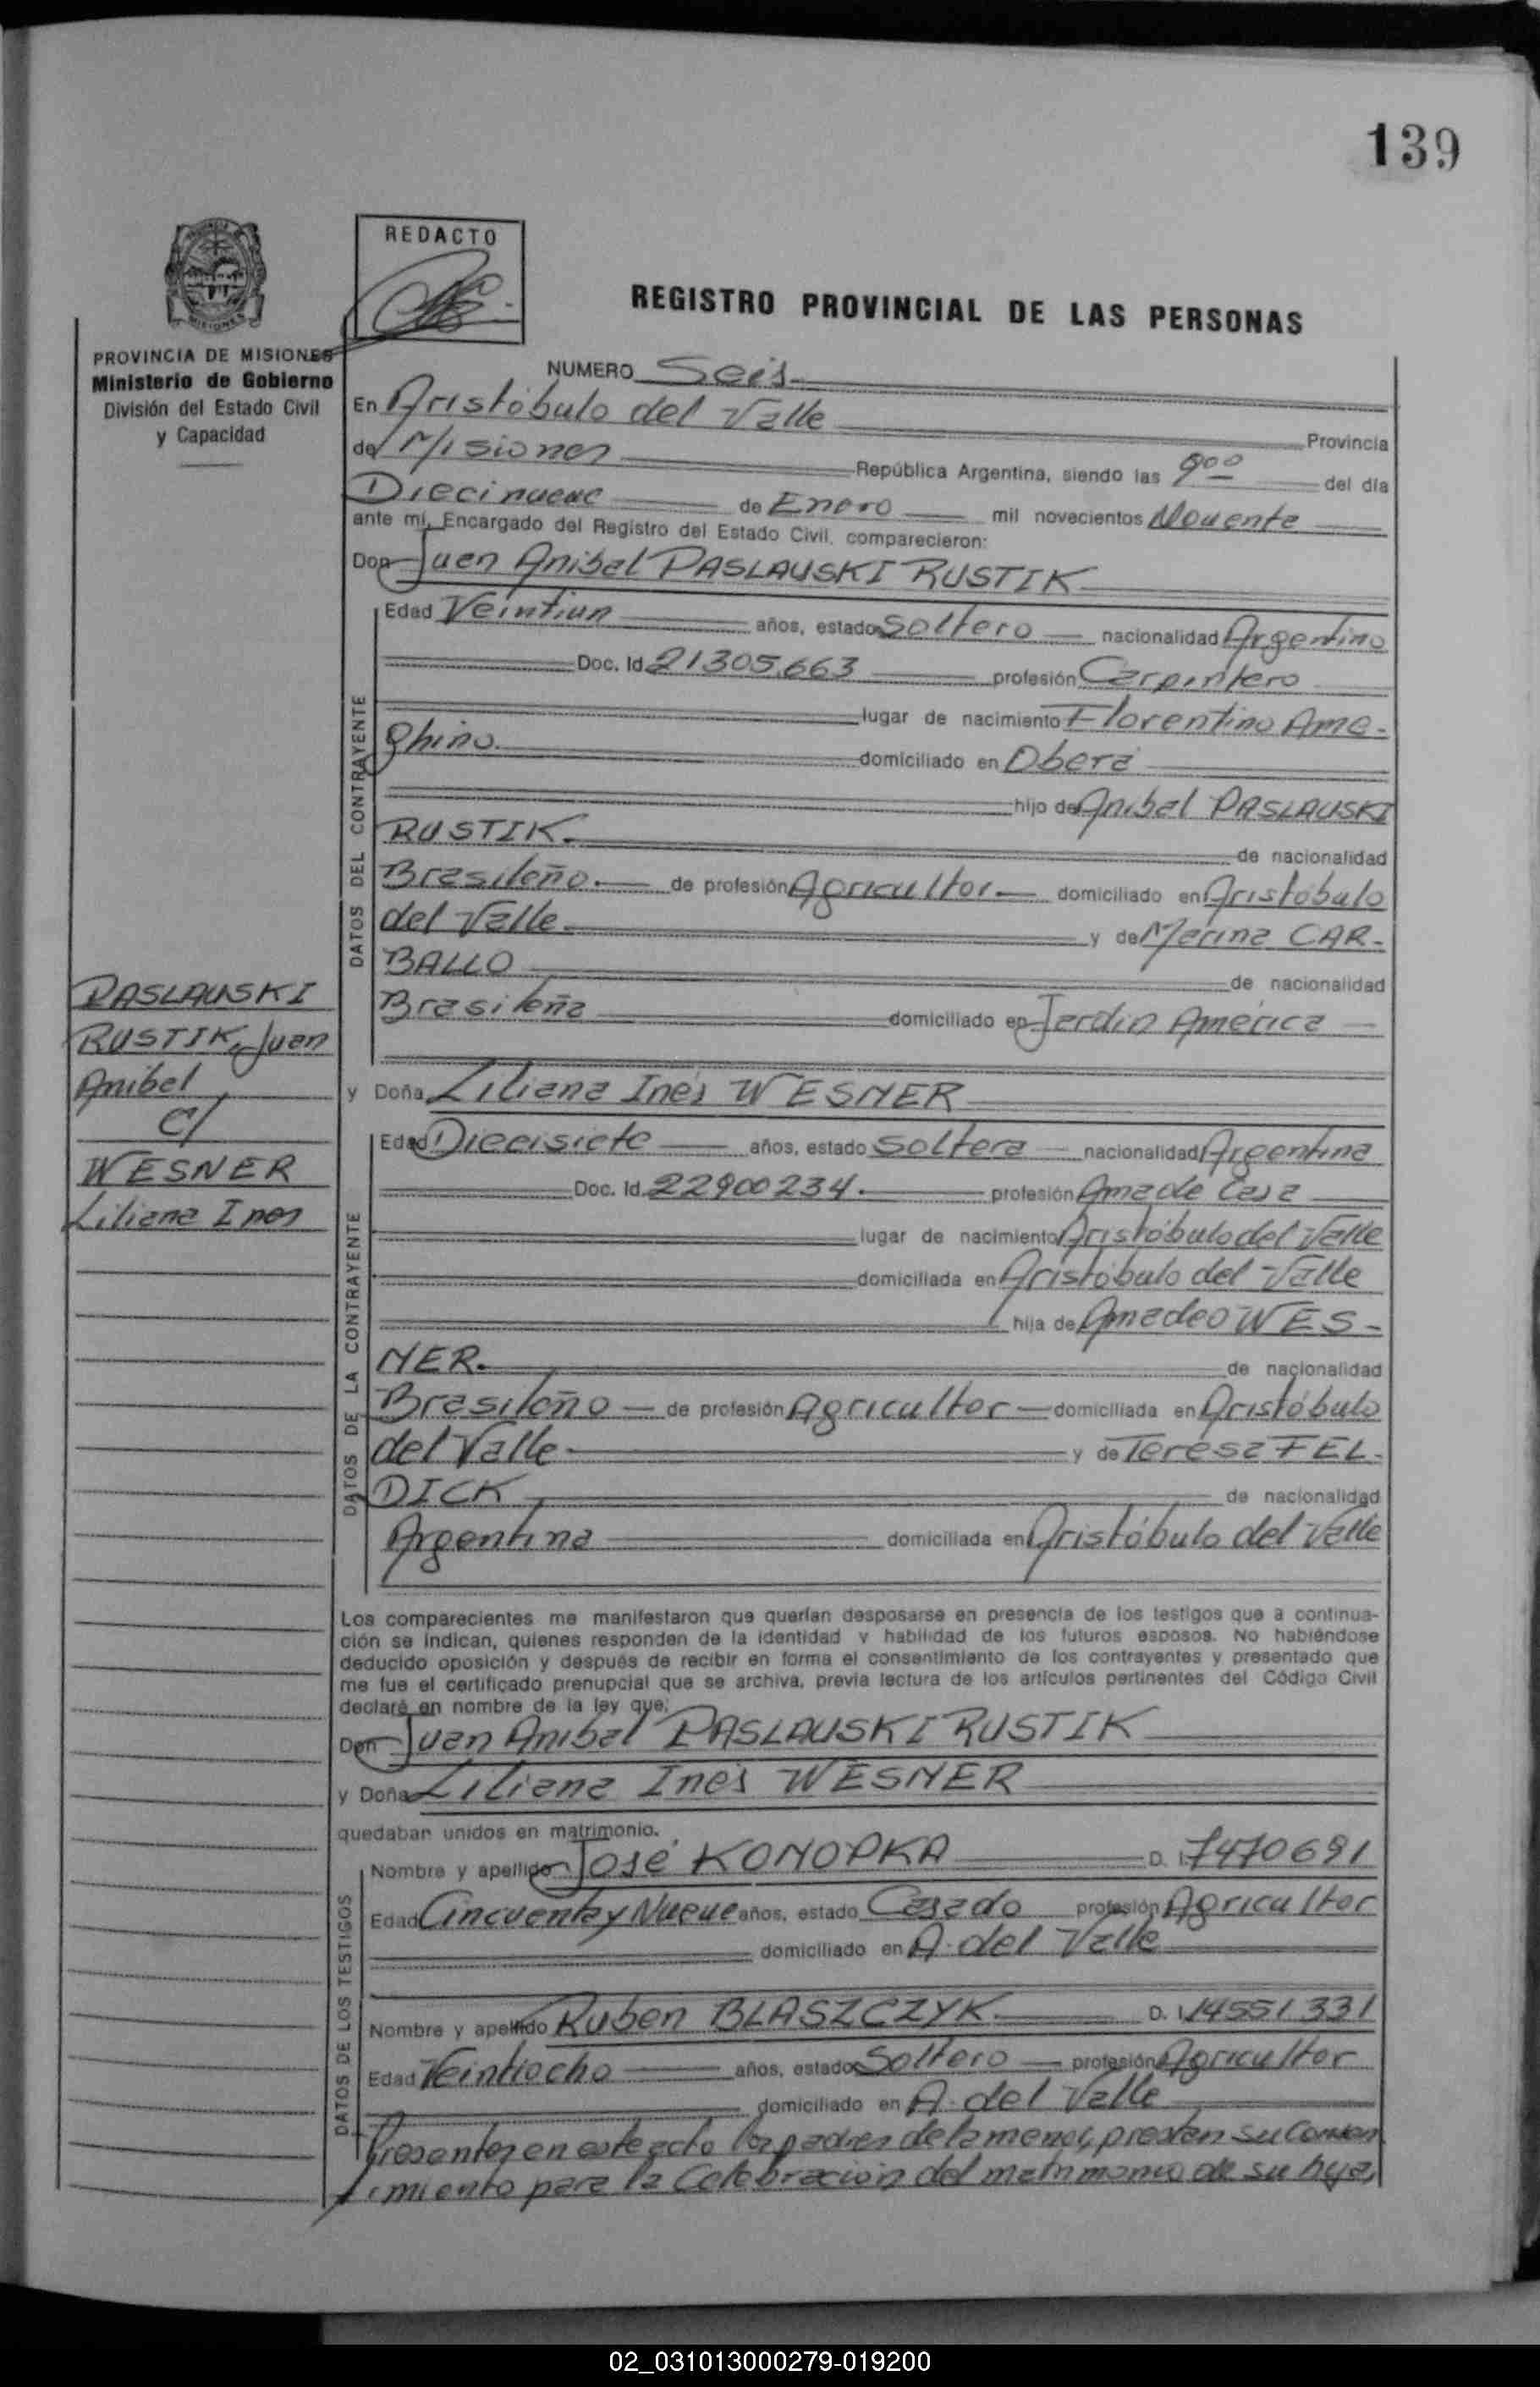 139
REDACTO
REGISTRO PROVINCIAL DE LAS PERSONAS
MISIONES
PROVINCIA DE MISIONES
Ministerio de Gobierno
División del Estado Civil
y Capacidad
NUMERO Seis
En Aristóbulo del Valle Provincia
de Misiones República Argentina, siendo las 9oo del día
Diecinueve de Enero mil novecientos Noventa
ante mí, Encargado del Registro del Estado Civil, comparecieron:
Don Juan Anibal PASLAUSKI RUSTIK
DATOS DEL CONTRAYENTE
Edad Veintiun años, estado Soltero nacionalidad Argentino
Doc. Id 21305.663 profesión Carpintero
lugar de nacimiento Florentino Ame-
ghino. domiciliado en Oberá
hijo de Anibal PASLAUSKI
RUSTIK. de nacionalidad
Brasileño. de profesión Agricultor. domiciliado en Aristóbulo
del Valle. y de Marina CAR-
BALLO de nacionalidad
Brasileña domiciliado en Jardin América
y Doña Liliana Inés WESNER
DATOS DE LA CONTRAYENTE
Edad Diecisiete años, estado Soltera nacionalidad Argentina
Doc. Id. 22900234. profesión Ama de Casa
lugar de nacimiento Aristóbulo del Valle
domiciliada en Aristóbulo del Valle
hija de Amadeo WES-
NER. de nacionalidad
Brasileño de profesión Agricultor domiciliada en Aristóbulo
del Valle. y de Teresa FEL-
DICK de nacionalidad
Argentina domiciliada en Aristóbulo del Valle
PASLAUSKI
RUSTIK, Juan
Anibal
C/
WESNER
Liliana Ines
Los comparecientes me manifestaron que querían desposarse en presencia de los testigos que a continua-
ción se indican, quienes responden de la identidad y habilidad de los futuros esposos. No habiéndose
deducido oposición y después de recibir en forma el consentimiento de los contrayentes y presentado que
me fue el certificado prenupcial que se archiva, previa lectura de los artículos pertinentes del Código Civil
declaré en nombre de la ley que:
Don Juan Anibal PASLAUSKI RUSTIK
y Doña Liliana Inés WESNER
quedaban unidos en matrimonio.
DATOS DE LOS TESTIGOS
Nombre y apellido José KONOPKA D. I. 7470691
Edad Cincuenta y Nueve años, estado Casado profesión Agricultor
domiciliado en A. del Valle
Nombre y apellido Ruben BLASZCZYK D. I. 14551331
Edad Veintiocho años, estado Soltero profesión Agricultor
domiciliado en A. del Valle
Presentes en este acto los padres de la menor, prestan su consen
timiento para la Celebración del matrimonio de su hija,
02_031013000279-019200